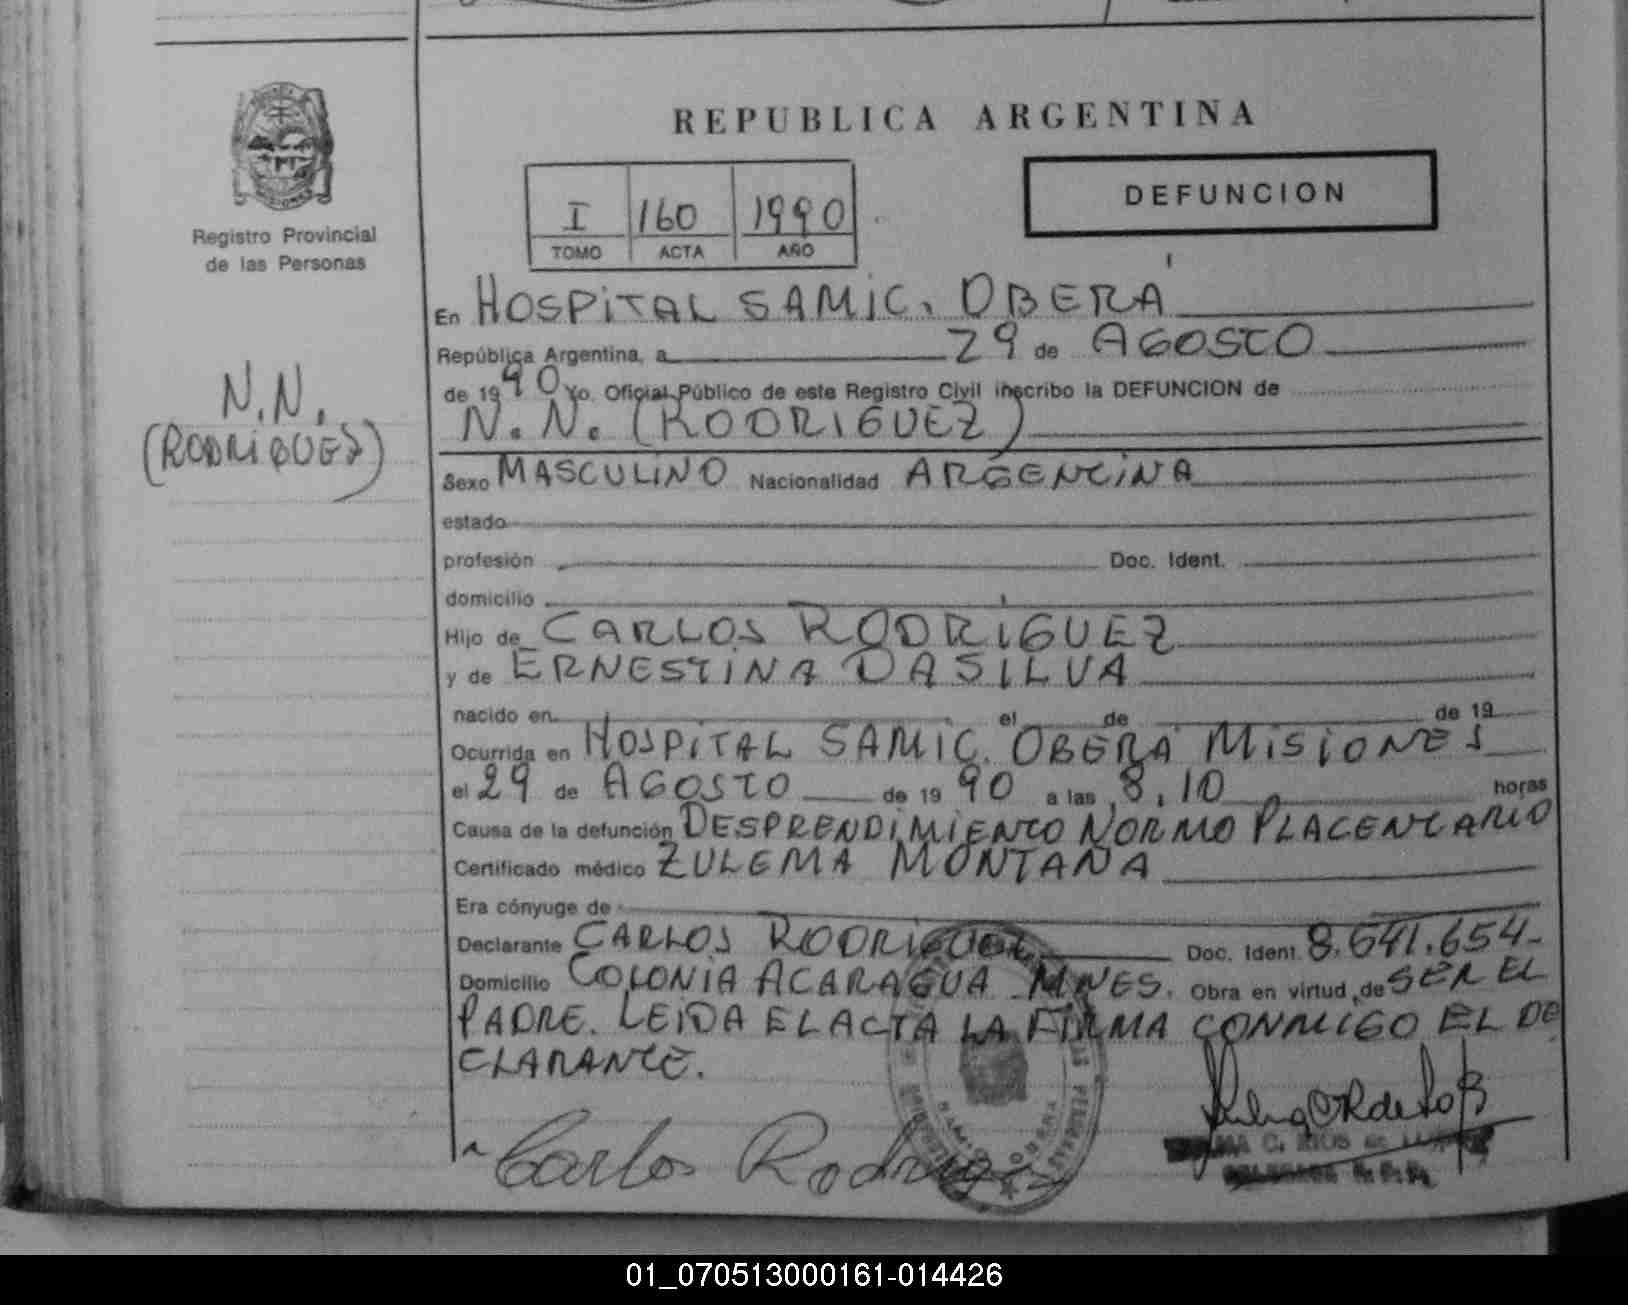 REPUBLICA ARGENTINA
I 160 1990
TOMO ACTA AÑO
DEFUNCION
Registro Provincial
de las Personas
N.N.
(RODRIGUEZ)
En HOSPITAL SAMIC. OBERA
República Argentina, a 29 de AGOSTO
de 1990 Yo. Oficial Público de este Registro Civil inscribo la DEFUNCION de
N. N. (RODRIGUEZ)
Sexo MASCULINO Nacionalidad ARGENTINA
estado
profesión Doc. Ident.
domicilio
Hijo de CARLOS RODRIGUEZ
y de ERNESTINA DASILVA
nacido en el de de 19
Ocurrida en HOSPITAL SAMIC. OBERA MISIONES
el 29 de AGOSTO de 1990 a las 8,10 horas
Causa de la defunción DESPRENDIMIENTO NORMO PLACENTARIO
Certificado médico ZULEMA MONTAÑA
Era cónyuge de
Declarante CARLOS RODRIGUEZ Doc. Ident. 8.641.654-
Domicilio COLONIA ACARAGUA MNES. Obra en virtud de SER EL
PADRE. LEIDA EL ACTA LA FIRMA CONMIGO EL DE
CLARANTE.
Carlos Rodriguez
01_070513000161-014426